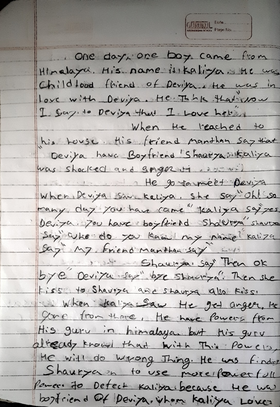 One day, one boy came from
Himalaya. His name is kaliya. He was
Childhood friend of Deviya. He was in
love with Deviya. He Think that now
I say to Deviya that I love her.
When He reached to
his house His friend Manthan say that
"Deviya have Boyfriend "Shaurya". kaliya
was shocked and anger
He go to meet Deviya
When Deviya saw keliya, she say "Oh! so
many day you have come" kaliya say yes
Deviya. you have boyfriend Shaurya"
say "who do you my name" kaliya
say "my friend manthan say"
Shaurya say" Then ok
bye Deviya say" bye Shaurya". Then she
kiss to Shaurya and shaurya also kiss.
When kaliya Saw He get anger, He
gone from there. He have powers from
His guru in himalaya but His guru
already known that with This Powers,
He will do wrong Thing. He was finds
Shaurya to use more powerfull
Powers to Defect kaliya because He was
boyfriend Of Deviya, whom kaliya Loves